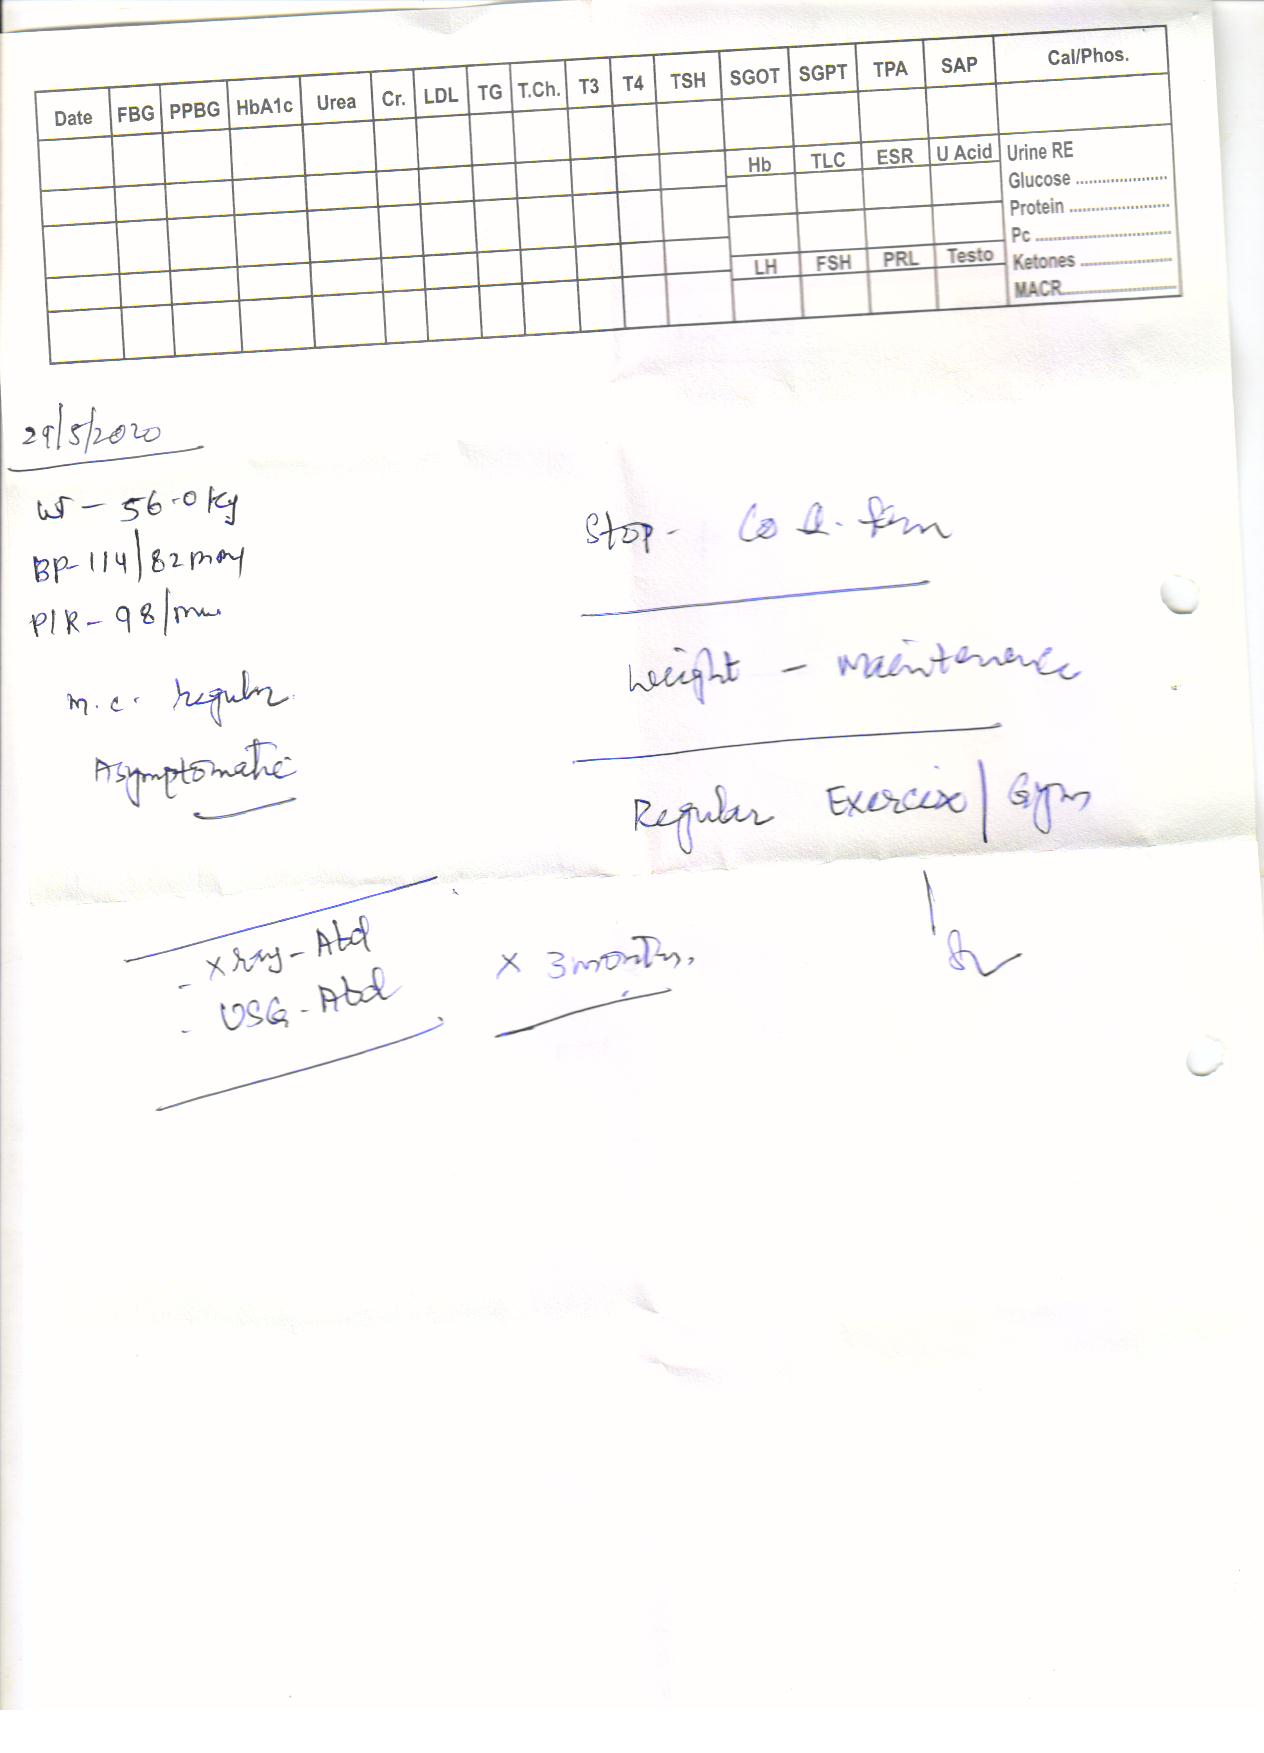 Date FBG PPBG HbA1c Urea Cr. LDL TG T.Ch. T3 T4 TSH SGOT SGPT TPA SAP Cal/Phos.
Hb TLC ESR U Acid Urine RE
Glucose ....................
Protein ......................
Pc ..............................
LH FSH PRL Testo Ketones ....................
MACR.........................
29/5/2020
Wt - 56.0 kg
BP- 114/82 mmHg
P/R - 98/min
m.c. regular
Asymptomatic
Stop -
Weight - Maintenence
Regular Exercise / Gym
- Xray - Abd
- USG - Abd
x 3 months.